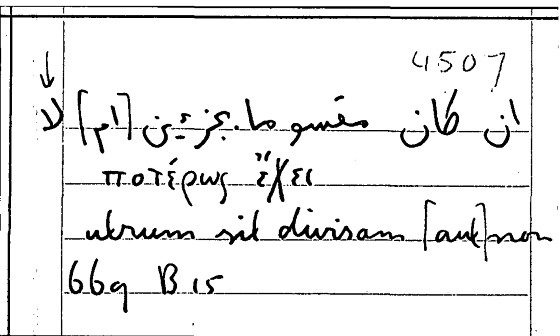 4507
ان كان مقسوما بجزئين [ام] لا
ποτέρως ἔχει
utrum sit divisam [aut] non
66a B 15